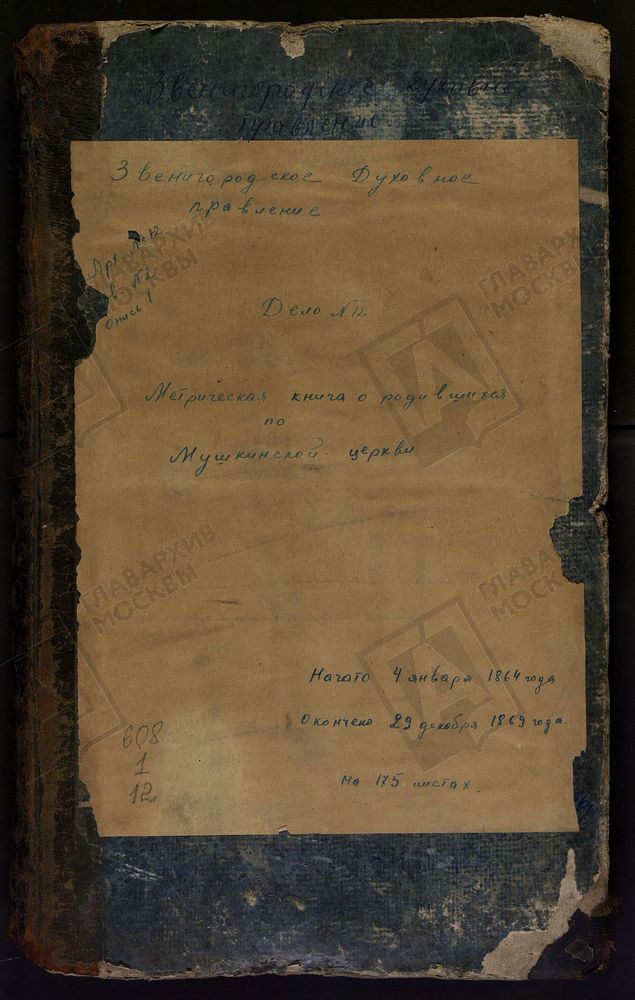 Звенигородское духовное
правление
Звенигородское Духовное
правление
Арх. № 12
№ 2
Опись 1
Дело № 12
Метрическая книга о родившихся
по
Мушкинской церкви
Начато 4 января 1864 года
Окончено 29 декабря 1869 года.
На 175 листах.
608
1
12
ГЛАВАРХИВ
МОСКВЫ
ГЛАВАРХИВ
МОСКВЫ
ГЛАВАРХИВ
МОСКВЫ
ГЛАВАРХИВ
МОСКВЫ